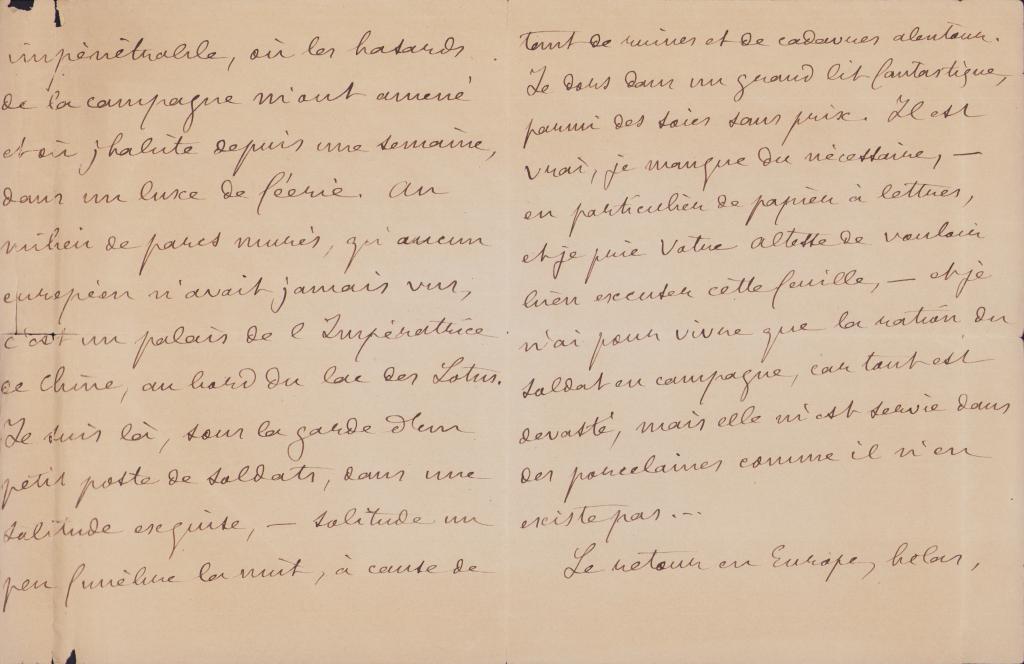 impénétrable, où les hasards
de la campagne m'ont amené
et où j'habite depuis une semaine,
dans un luxe de féerie. Au
milieu de parcs murés, qu'aucun
européen n'avait jamais vus,
c'est un palais de l'Impératrice
de Chine, au bord du lac des Lotus.
Je suis là, sous la garde d'un
petit poste de soldats, dans une
solitude exquise, — solitude un
peu funèbre la nuit, à cause de
tant de ruines et de cadavres alentour.
Je dors dans un grand lit fantastique,
parmi des soies sans prix. Il est
vrai, je manque du nécessaire, —
en particulier de papier à lettres,
et je prie Votre Altesse de vouloir
bien excuser cette feuille, — et je
n'ai pour vivre que la ration du
soldat en campagne, car tout est
devasté, mais elle m'est servie dans
des porcelaines comme il n'en
existe pas...
Le retour en Europe, helas,